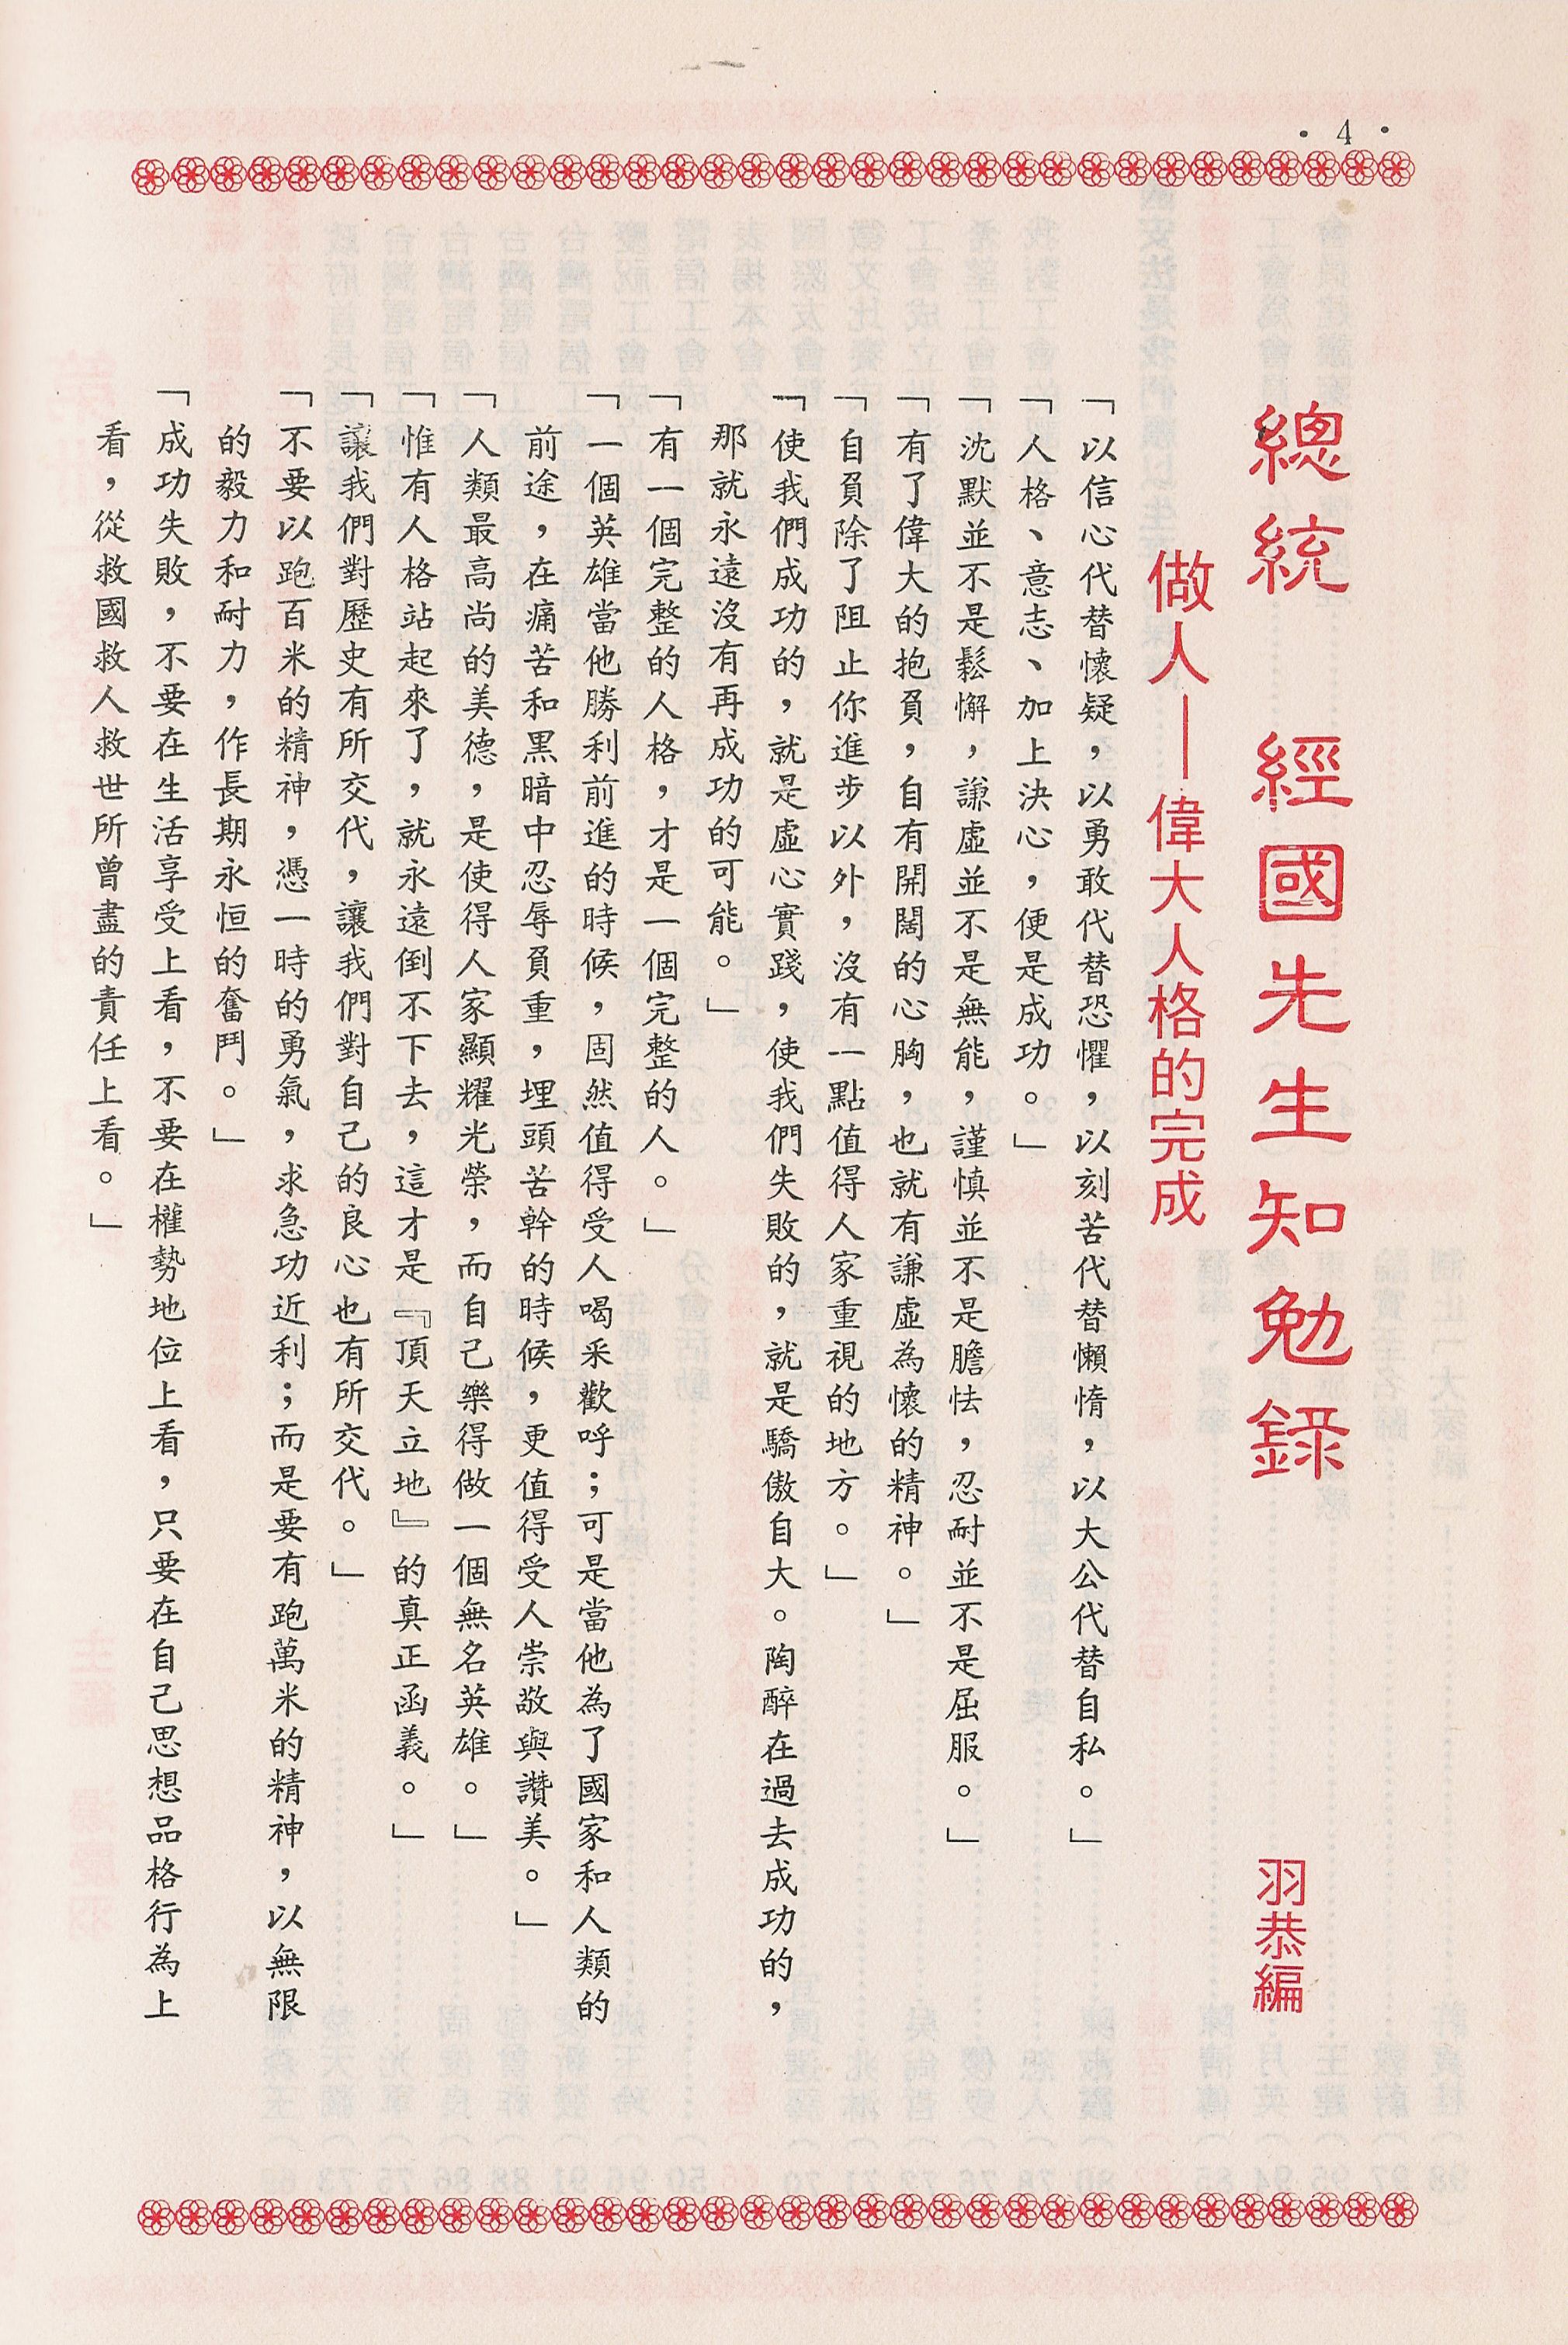 · 4 ·
總統　經國先生知勉錄
羽恭編
做人——偉大人格的完成
「以信心代替懷疑，以勇敢代替恐懼，以刻苦代替懶惰，以大公代替自私。」
「人格、意志、加上決心，便是成功。」
「沈默並不是鬆懈，謙虛並不是無能，謹慎並不是膽怯，忍耐並不是屈服。」
「有了偉大的抱負，自有開闊的心胸，也就有謙虛為懷的精神。」
「自負除了阻止你進步以外，沒有一點值得人家重視的地方。」
「使我們成功的，就是虛心實踐，使我們失敗的，就是驕傲自大。陶醉在過去成功的，
那就永遠沒有再成功的可能。」
「有一個完整的人格，才是一個完整的人。」
「一個英雄當他勝利前進的時候，固然值得受人喝釆歡呼；可是當他為了國家和人類的
前途，在痛苦和黑暗中忍辱負重，埋頭苦幹的時候，更值得受人崇敬與讚美。」
「人類最高尚的美德，是使得人家顯耀光榮，而自己樂得做一個無名英雄。」
「惟有人格站起來了，就永遠倒不下去，這才是『頂天立地』的真正函義。」
「讓我們對歷史有所交代，讓我們對自己的良心也有所交代。」
「不要以跑百米的精神，憑一時的勇氣，求急功近利；而是要有跑萬米的精神，以無限
的毅力和耐力，作長期永恒的奮鬥。」
「成功失敗，不要在生活享受上看，不要在權勢地位上看，只要在自己思想品格行為上
看，從救國救人救世所曾盡的責任上看。」